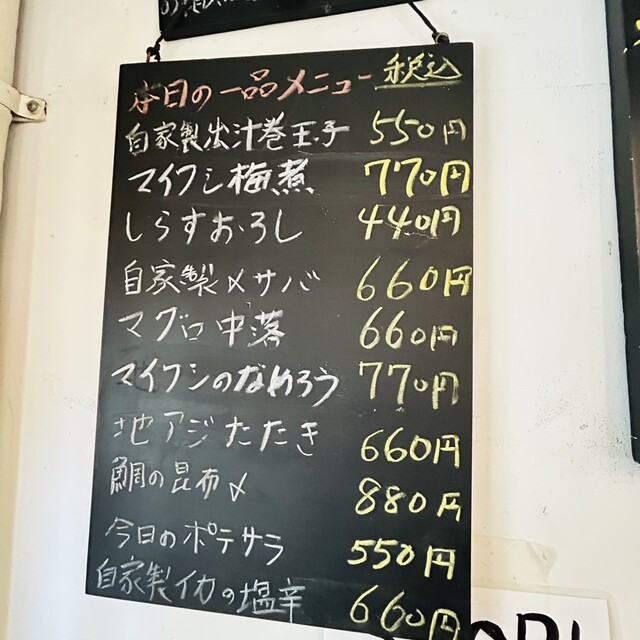 本日の一品メニュー 税込
自家製出汁巻玉子 550円
マイワシ梅煮 770円
しらすおろし 440円
自家製〆サバ 660円
マグロ中落 660円
マイワシのなめろう 770円
地アジたたき 660円
鯛の昆布〆 880円
今日のポテサラ 550円
自家製イカの塩辛 660円